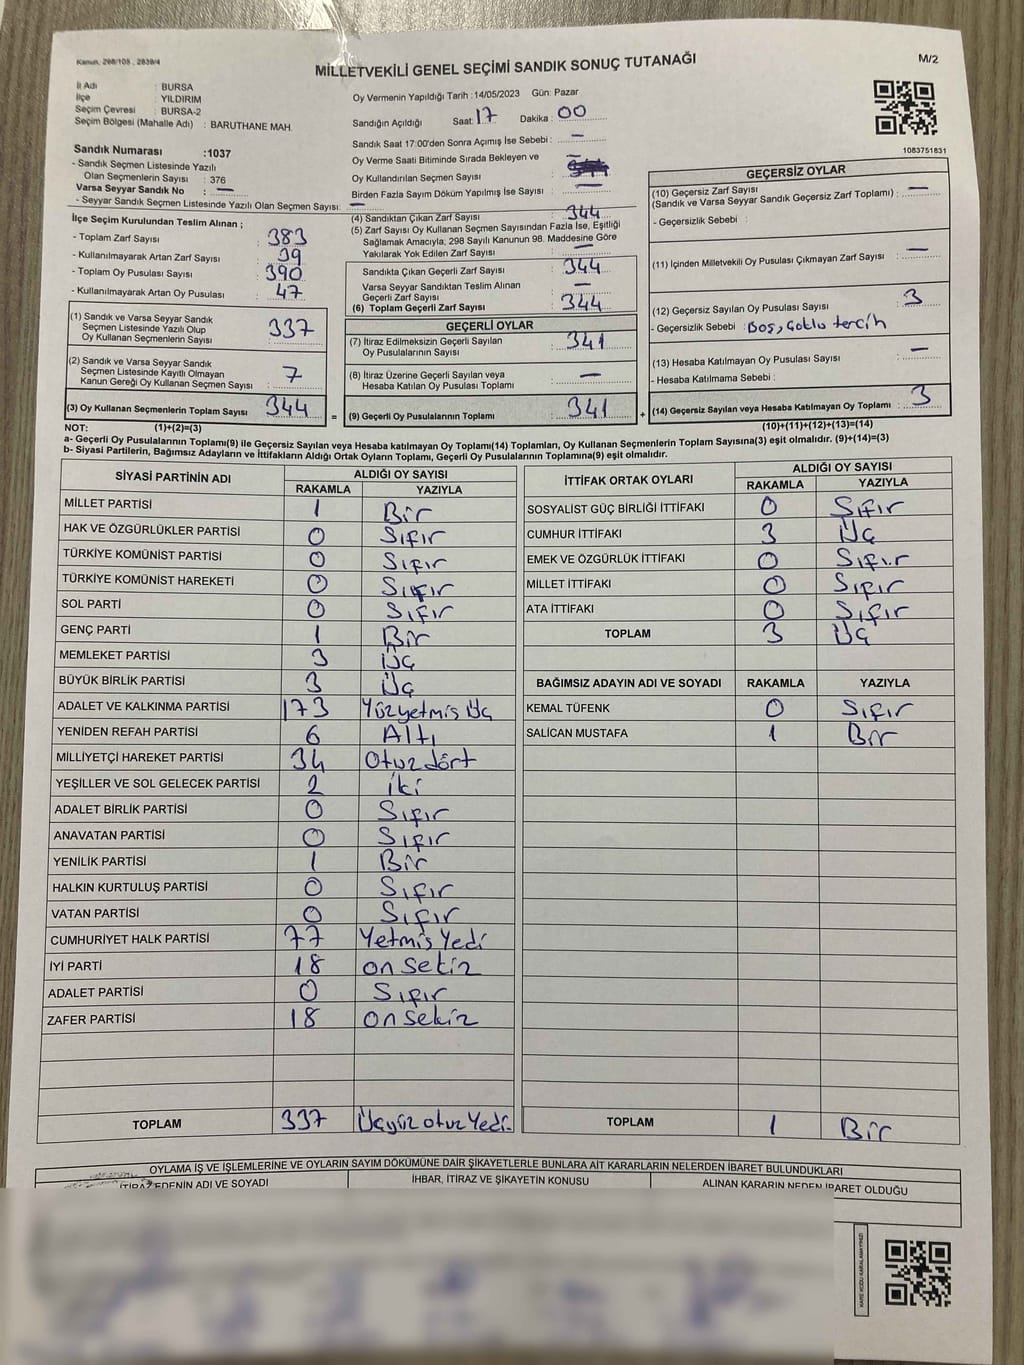 Kanun, 298/105 , 2839/4
MİLLETVEKİLİ GENEL SEÇİMİ SANDIK SONUÇ TUTANAĞI
M/2
İl Adı : BURSA
İlçe : YILDIRIM
Seçim Çevresi : BURSA-2
Seçim Bölgesi (Mahalle Adı) : BARUTHANE MAH.
Sandık Numarası :1037
- Sandık Seçmen Listesinde Yazılı
Olan Seçmenlerin Sayısı : 376
Varsa Seyyar Sandık No : —
- Seyyar Sandık Seçmen Listesinde Yazılı Olan Seçmen Sayısı: —
Oy Vermenin Yapıldığı Tarih :14/05/2023 Gün: Pazar
Sandığın Açıldığı Saat: 17 Dakika : 00
Sandık Saat 17:00'den Sonra Açımış İse Sebebi : —
Oy Verme Saati Bitiminde Sırada Bekleyen ve
Oy Kullandırılan Seçmen Sayısı : —
Birden Fazla Sayım Döküm Yapılmış İse Sayısı : —
1083751831
İlçe Seçim Kurulundan Teslim Alınan ;
- Toplam Zarf Sayısı : 383
- Kullanılmayarak Artan Zarf Sayısı : 39
- Toplam Oy Pusulası Sayısı : 390
- Kullanılmayarak Artan Oy Pusulası : 47
(1) Sandık ve Varsa Seyyar Sandık
Seçmen Listesinde Yazılı Olup
Oy Kullanan Seçmenlerin Sayısı : 337
(2) Sandık ve Varsa Seyyar Sandık
Seçmen Listesinde Kayıtlı Olmayan
Kanun Gereği Oy Kullanan Seçmen Sayısı : 7
(3) Oy Kullanan Seçmenlerin Toplam Sayısı 344
(4) Sandıktan Çıkan Zarf Sayısı : 344
(5) Zarf Sayısı Oy Kullanan Seçmen Sayısından Fazla İse, Eşitliği
Sağlamak Amacıyla, 298 Sayılı Kanunun 98. Maddesine Göre
Yakılarak Yok Edilen Zarf Sayısı : —
Sandıkta Çıkan Geçerli Zarf Sayısı : 344
Varsa Seyyar Sandıktan Teslim Alınan
Geçerli Zarf Sayısı : —
(6) Toplam Geçerli Zarf Sayısı : 344
GEÇERLİ OYLAR
(7) İtiraz Edilmeksizin Geçerli Sayılan
Oy Pusulalarının Sayısı : 341
(8) İtiraz Üzerine Geçerli Sayılan veya
Hesaba Katılan Oy Pusulası Toplamı : —
= (9) Geçerli Oy Pusulalarının Toplamı : 341
GEÇERSİZ OYLAR
(10) Geçersiz Zarf Sayısı
(Sandık ve Varsa Seyyar Sandık Geçersiz Zarf Toplamı) : —
- Geçersizlik Sebebi :
(11) İçinden Milletvekili Oy Pusulası Çıkmayan Zarf Sayısı : —
(12) Geçersiz Sayılan Oy Pusulası Sayısı : 3
- Geçersizlik Sebebi : Boş, Çoklu tercih
(13) Hesaba Katılmayan Oy Pusulası Sayısı : —
- Hesaba Katılmama Sebebi :
+ (14) Geçersiz Sayılan veya Hesaba Katılmayan Oy Toplamı : 3
NOT: (1)+(2)=(3)
(10)+(11)+(12)+(13)=(14)
a- Geçerli Oy Pusulalarının Toplamı(9) ile Geçersiz Sayılan veya Hesaba katılmayan Oy Toplam(14) Toplamları, Oy Kullanan Seçmenlerin Toplam Sayısına(3) eşit olmalıdır. (9)+(14)=(3)
b- Siyasi Partilerin, Bağımsız Adayların ve İttifakların Aldığı Ortak Oyların Toplamı, Geçerli Oy Pusulalarının Toplamına(9) eşit olmalıdır.
SİYASİ PARTİNİN ADI ALDIĞI OY SAYISI
RAKAMLA YAZIYLA
MİLLET PARTİSİ 1 Bir
HAK VE ÖZGÜRLÜKLER PARTİSİ 0 Sıfır
TÜRKİYE KOMÜNİST PARTİSİ 0 Sıfır
TÜRKİYE KOMÜNİST HAREKETİ 0 Sıfır
SOL PARTİ 0 Sıfır
GENÇ PARTİ 1 Bir
MEMLEKET PARTİSİ 3 Üç
BÜYÜK BİRLİK PARTİSİ 3 Üç
ADALET VE KALKINMA PARTİSİ 173 Yüzyetmiş Üç
YENİDEN REFAH PARTİSİ 6 Altı
MİLLİYETÇİ HAREKET PARTİSİ 34 Otuz dört
YEŞİLLER VE SOL GELECEK PARTİSİ 2 İki
ADALET BİRLİK PARTİSİ 0 Sıfır
ANAVATAN PARTİSİ 0 Sıfır
YENİLİK PARTİSİ 1 Bir
HALKIN KURTULUŞ PARTİSİ 0 Sıfır
VATAN PARTİSİ 0 Sıfır
CUMHURİYET HALK PARTİSİ 77 Yetmiş Yedi
İYİ PARTİ 18 on sekiz
ADALET PARTİSİ 0 Sıfır
ZAFER PARTİSİ 18 on sekiz
TOPLAM 337 Üçyüz otuz Yedi
İTTİFAK ORTAK OYLARI ALDIĞI OY SAYISI
RAKAMLA YAZIYLA
SOSYALİST GÜÇ BİRLİĞİ İTTİFAKI 0 Sıfır
CUMHUR İTTİFAKI 3 Üç
EMEK VE ÖZGÜRLÜK İTTİFAKI 0 Sıfır
MİLLET İTTİFAKI 0 Sıfır
ATA İTTİFAKI 0 Sıfır
TOPLAM 3 Üç
BAĞIMSIZ ADAYIN ADI VE SOYADI RAKAMLA YAZIYLA
KEMAL TÜFENK 0 Sıfır
SALİCAN MUSTAFA 1 Bir
TOPLAM 1 Bir
OYLAMA İŞ VE İŞLEMLERİNE VE OYLARIN SAYIM DÖKÜMÜNE DAİR ŞİKAYETLERLE BUNLARA AİT KARARLARIN NELERDEN İBARET BULUNDUKLARI
İTİRAZ EDENİN ADI VE SOYADI İHBAR, İTİRAZ VE ŞİKAYETİN KONUSU ALINAN KARARIN NEDEN İBARET OLDUĞU
KARE KODU KARALAMAYINIZ!